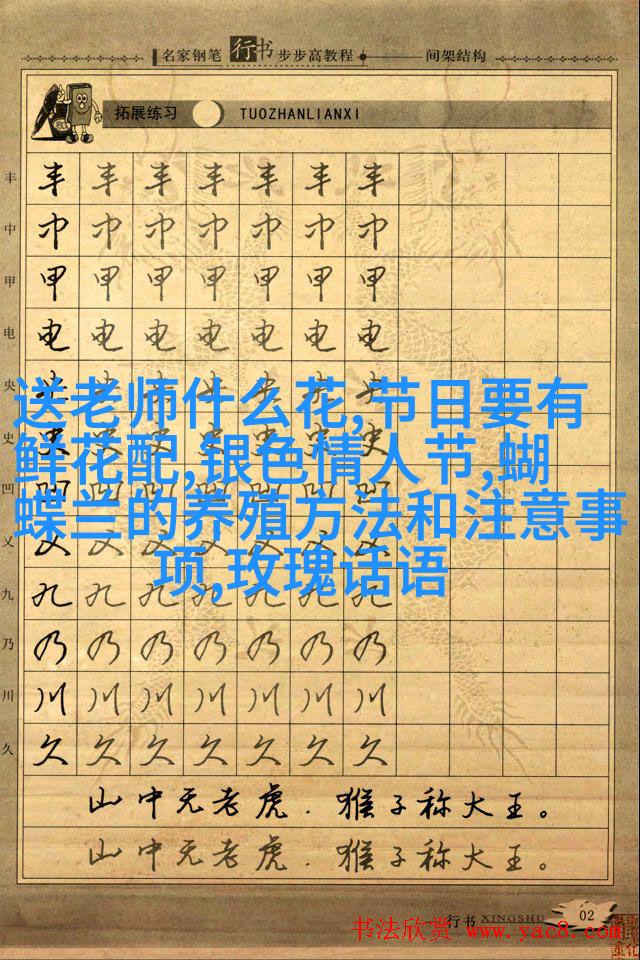 名家钢笔行书步步高教程 间架结构
拓展练习 TUOZHANLIANXI
丰 丰 丰 丰 丰 丰 丰 丰
中 中 中 中 中 中 中 中
甲 甲 甲 甲 甲 甲 甲 甲
电 电 电 电 电 电 电 电
央 央 央 央 央 央 央 央
送老师什么花,节日要有
史 史 史 史 史 史 史 史
鲜花配,银色情人节,蝴
凹 凹 凹 凹 凹 凹 凹 凹
蝶兰的养殖方法和注意事
义 义 义 义 义 义 义 义
项,玫瑰话语
九 九 九 九 九 九 九 九
乃 乃 乃 乃 乃 乃 乃 乃
川 川 川 川 川 川 川 川
久 久 久 久 久 久 久 久
山中无老虎．猴子称大王。
山中无老虎．猴子称大王。
行书 XINGSHU 02
书法欣赏 www.yac8.com